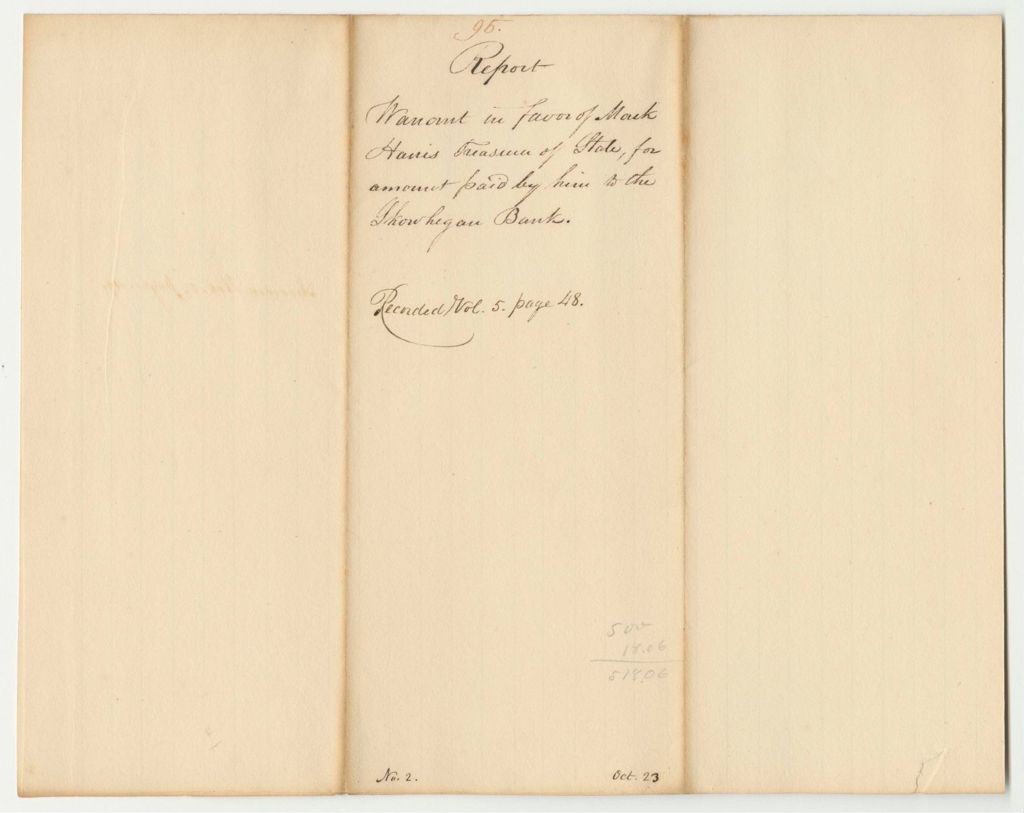 95.
Report
Warrant in favor of Mark
Harris Treasurer of State, for
amount paid by him to the
Skowhegan Bank.
Recorded Vol. 5. page 48.
500
18.06
518.06
No. 2. Oct. 23